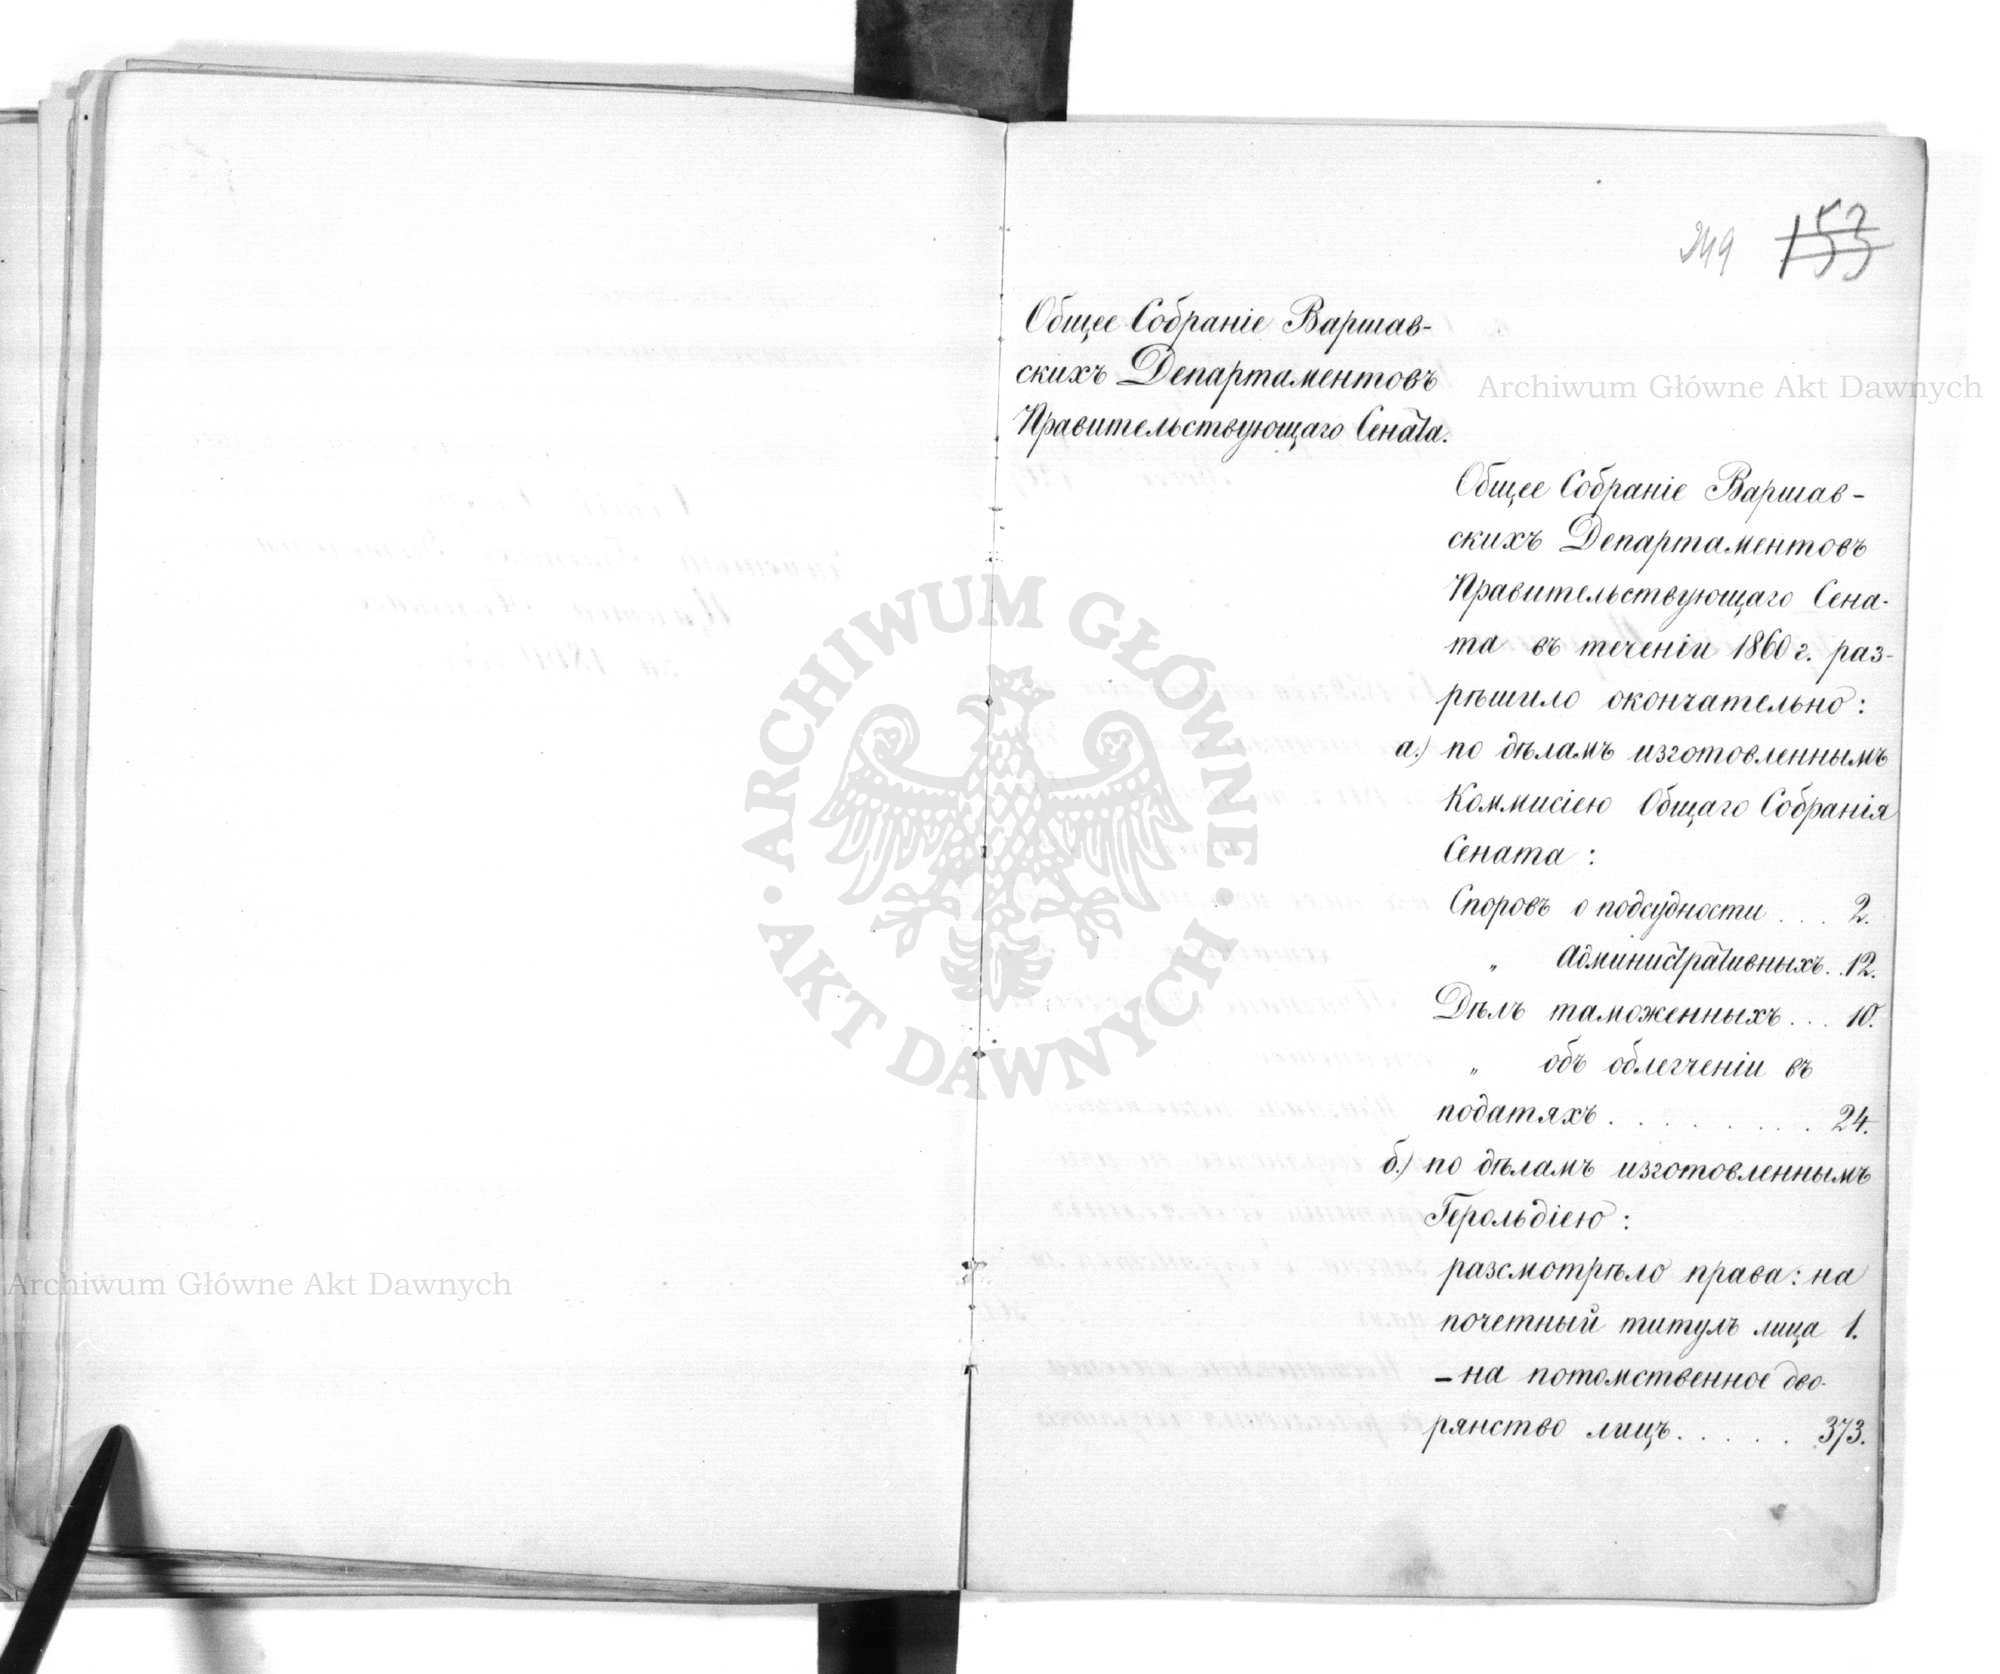 249 153
Общее Собраніе Варшав-
скихъ Департаментовъ
Правительствующаго Сената.
Archiwum Główne Akt Dawnych
Общее Собраніе Варшав-
скихъ Департаментовъ
Правительствующаго Сена-
та въ теченіи 1860 г. раз-
рѣшило окончательно:
а.) по дѣламъ изготовленнымъ
Коммисіею Общаго Собранія
Сената:
Споровъ о подсудности . . . 2.
„ Административныхъ . . 12.
Дѣлъ таможенныхъ . . . 10.
„ объ облегченіи въ
податяхъ . . . . . . . . 24.
б.) по дѣламъ изготовленнымъ
Герольдіею:
разсмотрѣло права: на
почетный титулъ лица 1.
– на потомственное дво-
рянство лицъ . . . . . 373.
ARCHIWUM GŁÓWNE
AKT DAWNYCH
Archiwum Główne Akt Dawnych